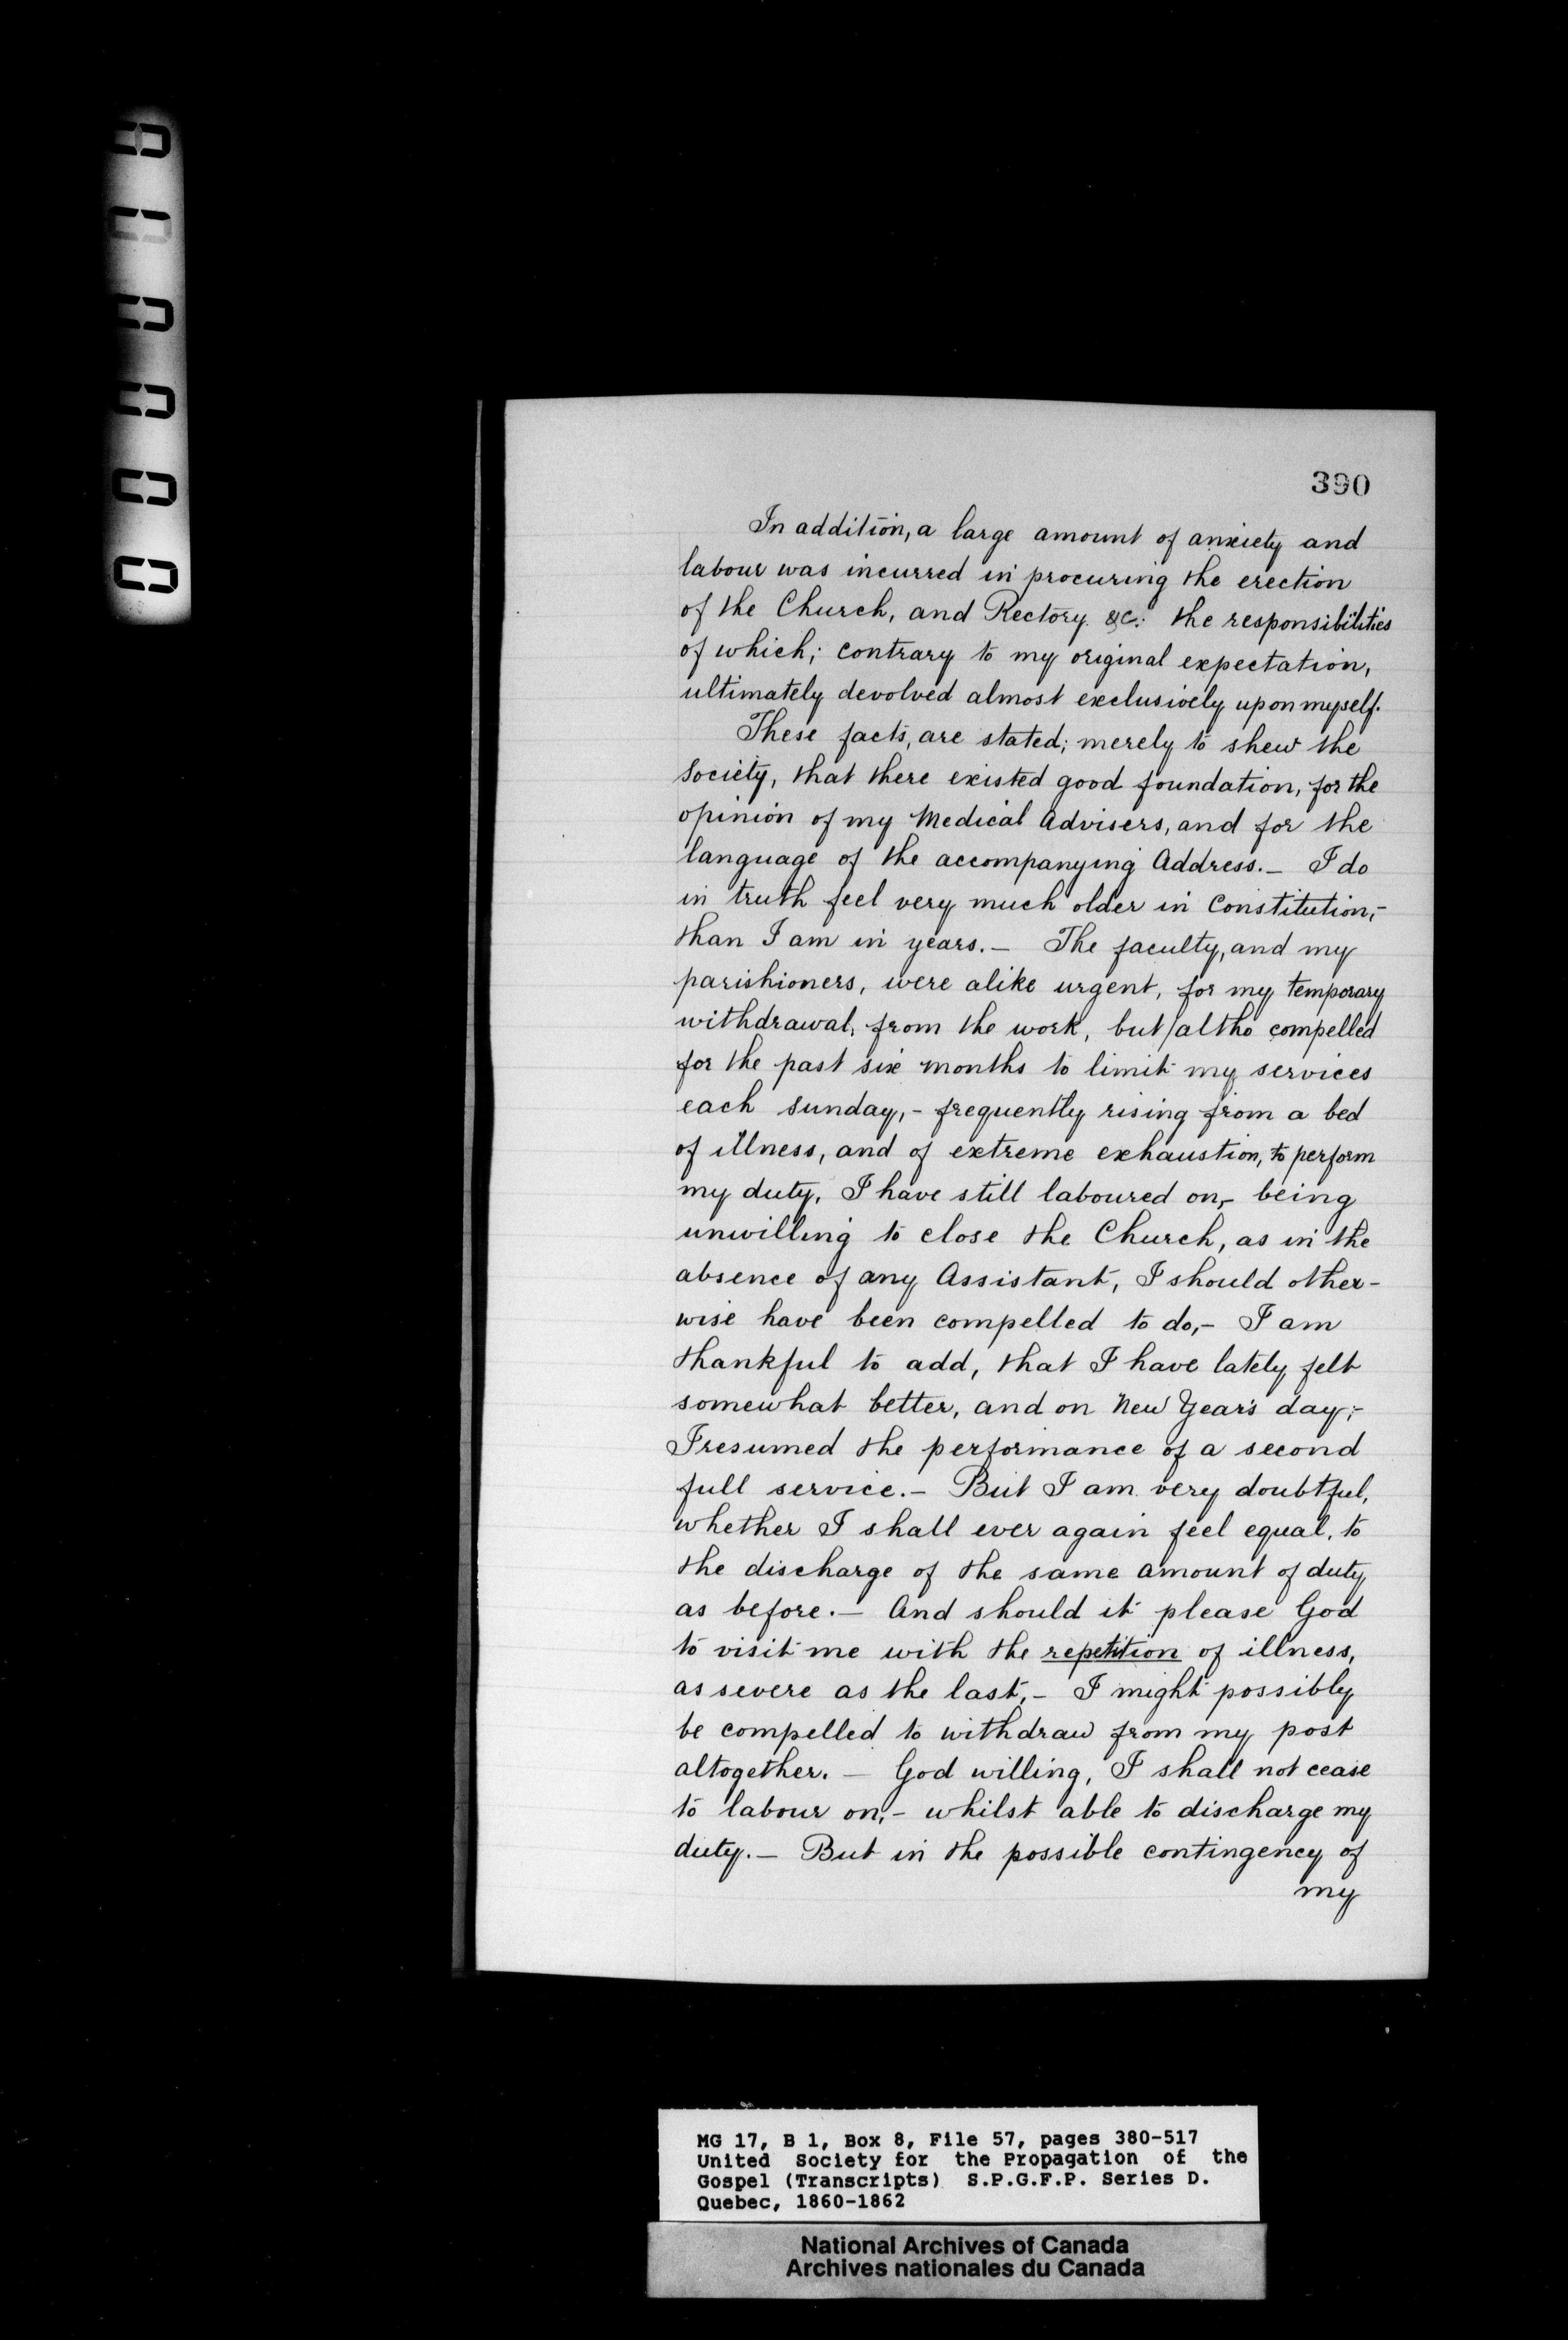 390
In addition, a large amount of anxiety and
labour was incurred in procuring the erection
of the Church, and Rectory. &c: the responsibilities
of which; contrary to my original expectation,
ultimately devolved almost exclusively upon myself.
These facts, are stated; merely to shew the
Society, that there existed good foundation, for the
opinion of my Medical Advisers, and for the
language of the accompanying Address.— I do
in truth feel very much older in Constitution,-
than I am in years.— The faculty, and my
parishioners, were alike urgent, for my temporary
withdrawal, from the work, but/altho compelled
for the past six months to limit my services
each Sunday,- frequently rising from a bed
of illness, and of extreme exhaustion, to perform
my duty, I have still laboured on,- being
unwilling to close the Church, as in the
absence of any Assistant, I should other-
wise have been compelled to do,- I am
thankful to add, that I have lately felt
somewhat better, and on New Year's day,-
I resumed the performance of a second
full service.— But I am very doubtful,
whether I shall ever again feel equal, to
the discharge of the same amount of duty,
as before.— And should it please God
to visit me with the repetition of illness,
as severe as the last,- I might possibly
be compelled to withdraw from my post
altogether.— God willing, I shall not cease
to labour on,- whilst able to discharge my
duty.— But in the possible contingency of
my
MG 17, B 1, Box 8, File 57, pages 380-517
United Society for the Propagation of the
Gospel (Transcripts) S.P.G.F.P. Series D.
Quebec, 1860-1862
National Archives of Canada
Archives nationales du Canada